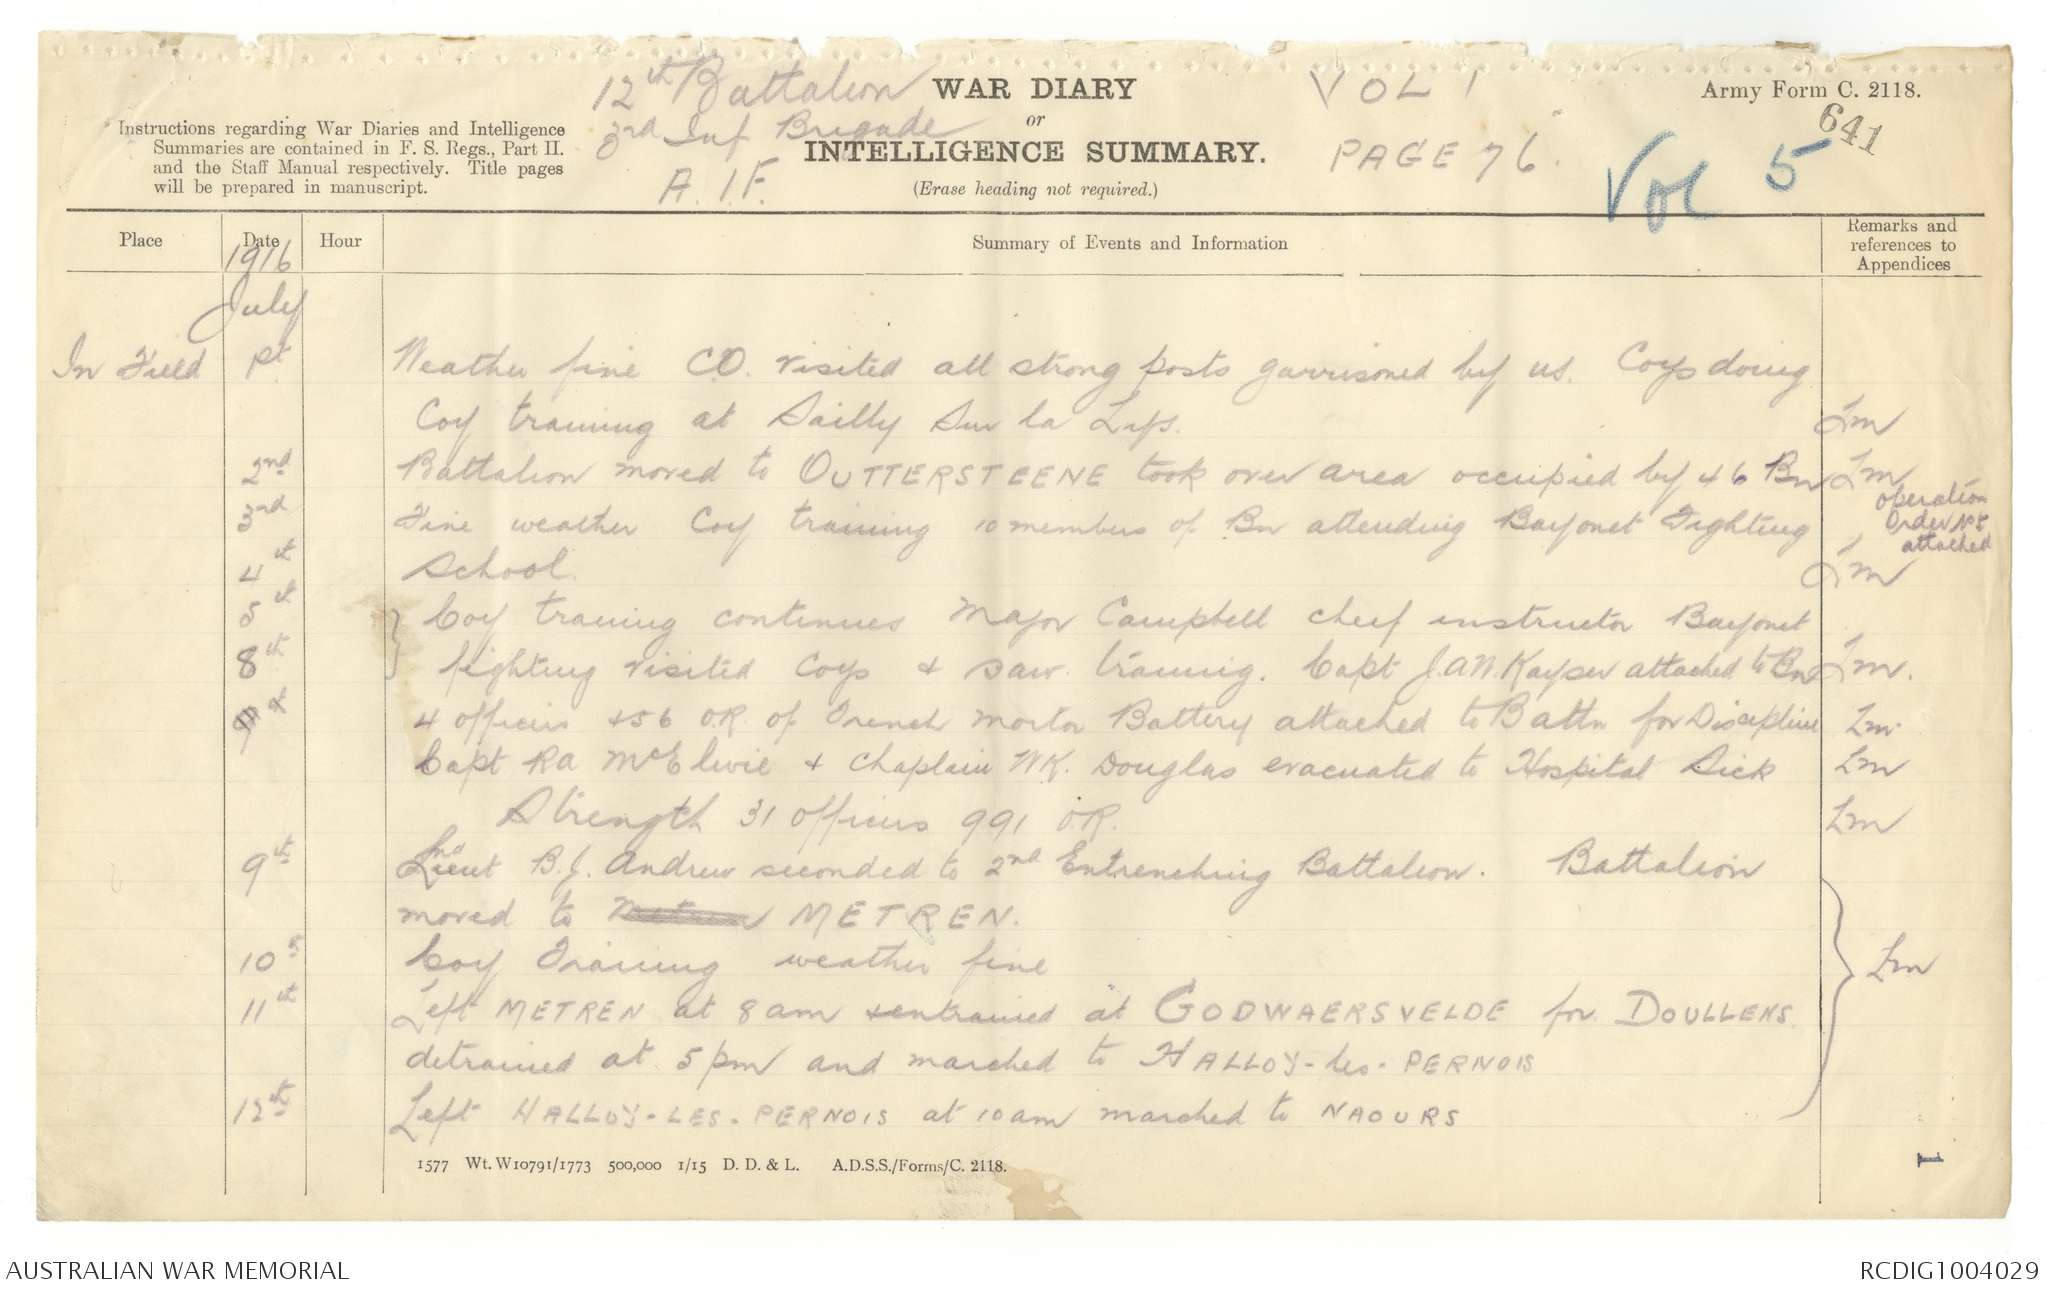 12th Battalion
3rd Inf Brigade
A.I.F.
WAR DIARY
or
INTELLIGENCE SUMMARY.
(Erase heading not required.)
VOL 1
PAGE 76.
Vol 5
Army Form C. 2118.
641
Instructions regarding War Diaries and Intelligence
Summaries are contained in F. S. Regs., Part II.
and the Staff Manual respectively. Title pages
will be prepared in manuscript.
Place Date Hour Summary of Events and Information Remarks and
references to
Appendices
1916
July
In Field 1st Weather fine C.O. visited all strong posts garrisoned by us. Coys doing
Coy training at Sailly Sur la Lys. Lm
2nd Battalion moved to OUTTERSTEENE took over area occupied by 46 Bn Lm
operation
Order No 5
attached
3rd Fine weather Coy training 10 members of Bn attending Bayonet Fighting
4th School. Lm
5th } Coy training continues Major Campbell cheif instructor Bayonet
8th fighting visited Coys & saw training. Capt J.A.W. Kayser attached to Bn Lm.
4 officers & 56 O.R. of Trench mortor Battery attached to Battn for Discipline Lm
Capt RA McElwie & Chaplain WK. Douglas evacuated to Hospital Sick Lm
Strength 31 officers 991 O.R. Lm
9th Lieut B.J. Andrew seconded to 2nd Entrenching Battalion. Battalion
moved to METREN.
10th Coy Training weather fine Lm
11th Left METREN at 8am & entrained at GODWAERSVELDE for DOULLENS.
detrained at 5pm and marched to HALLOY-les-PERNOIS
12th Left HALLOY-LES-PERNOIS at 10am marched to NAOURS
1577 Wt. W10791/1773 500,000 1/15 D. D. & L. A.D.S.S./Forms/C. 2118.
1
AUSTRALIAN WAR MEMORIAL
RCDIG1004029